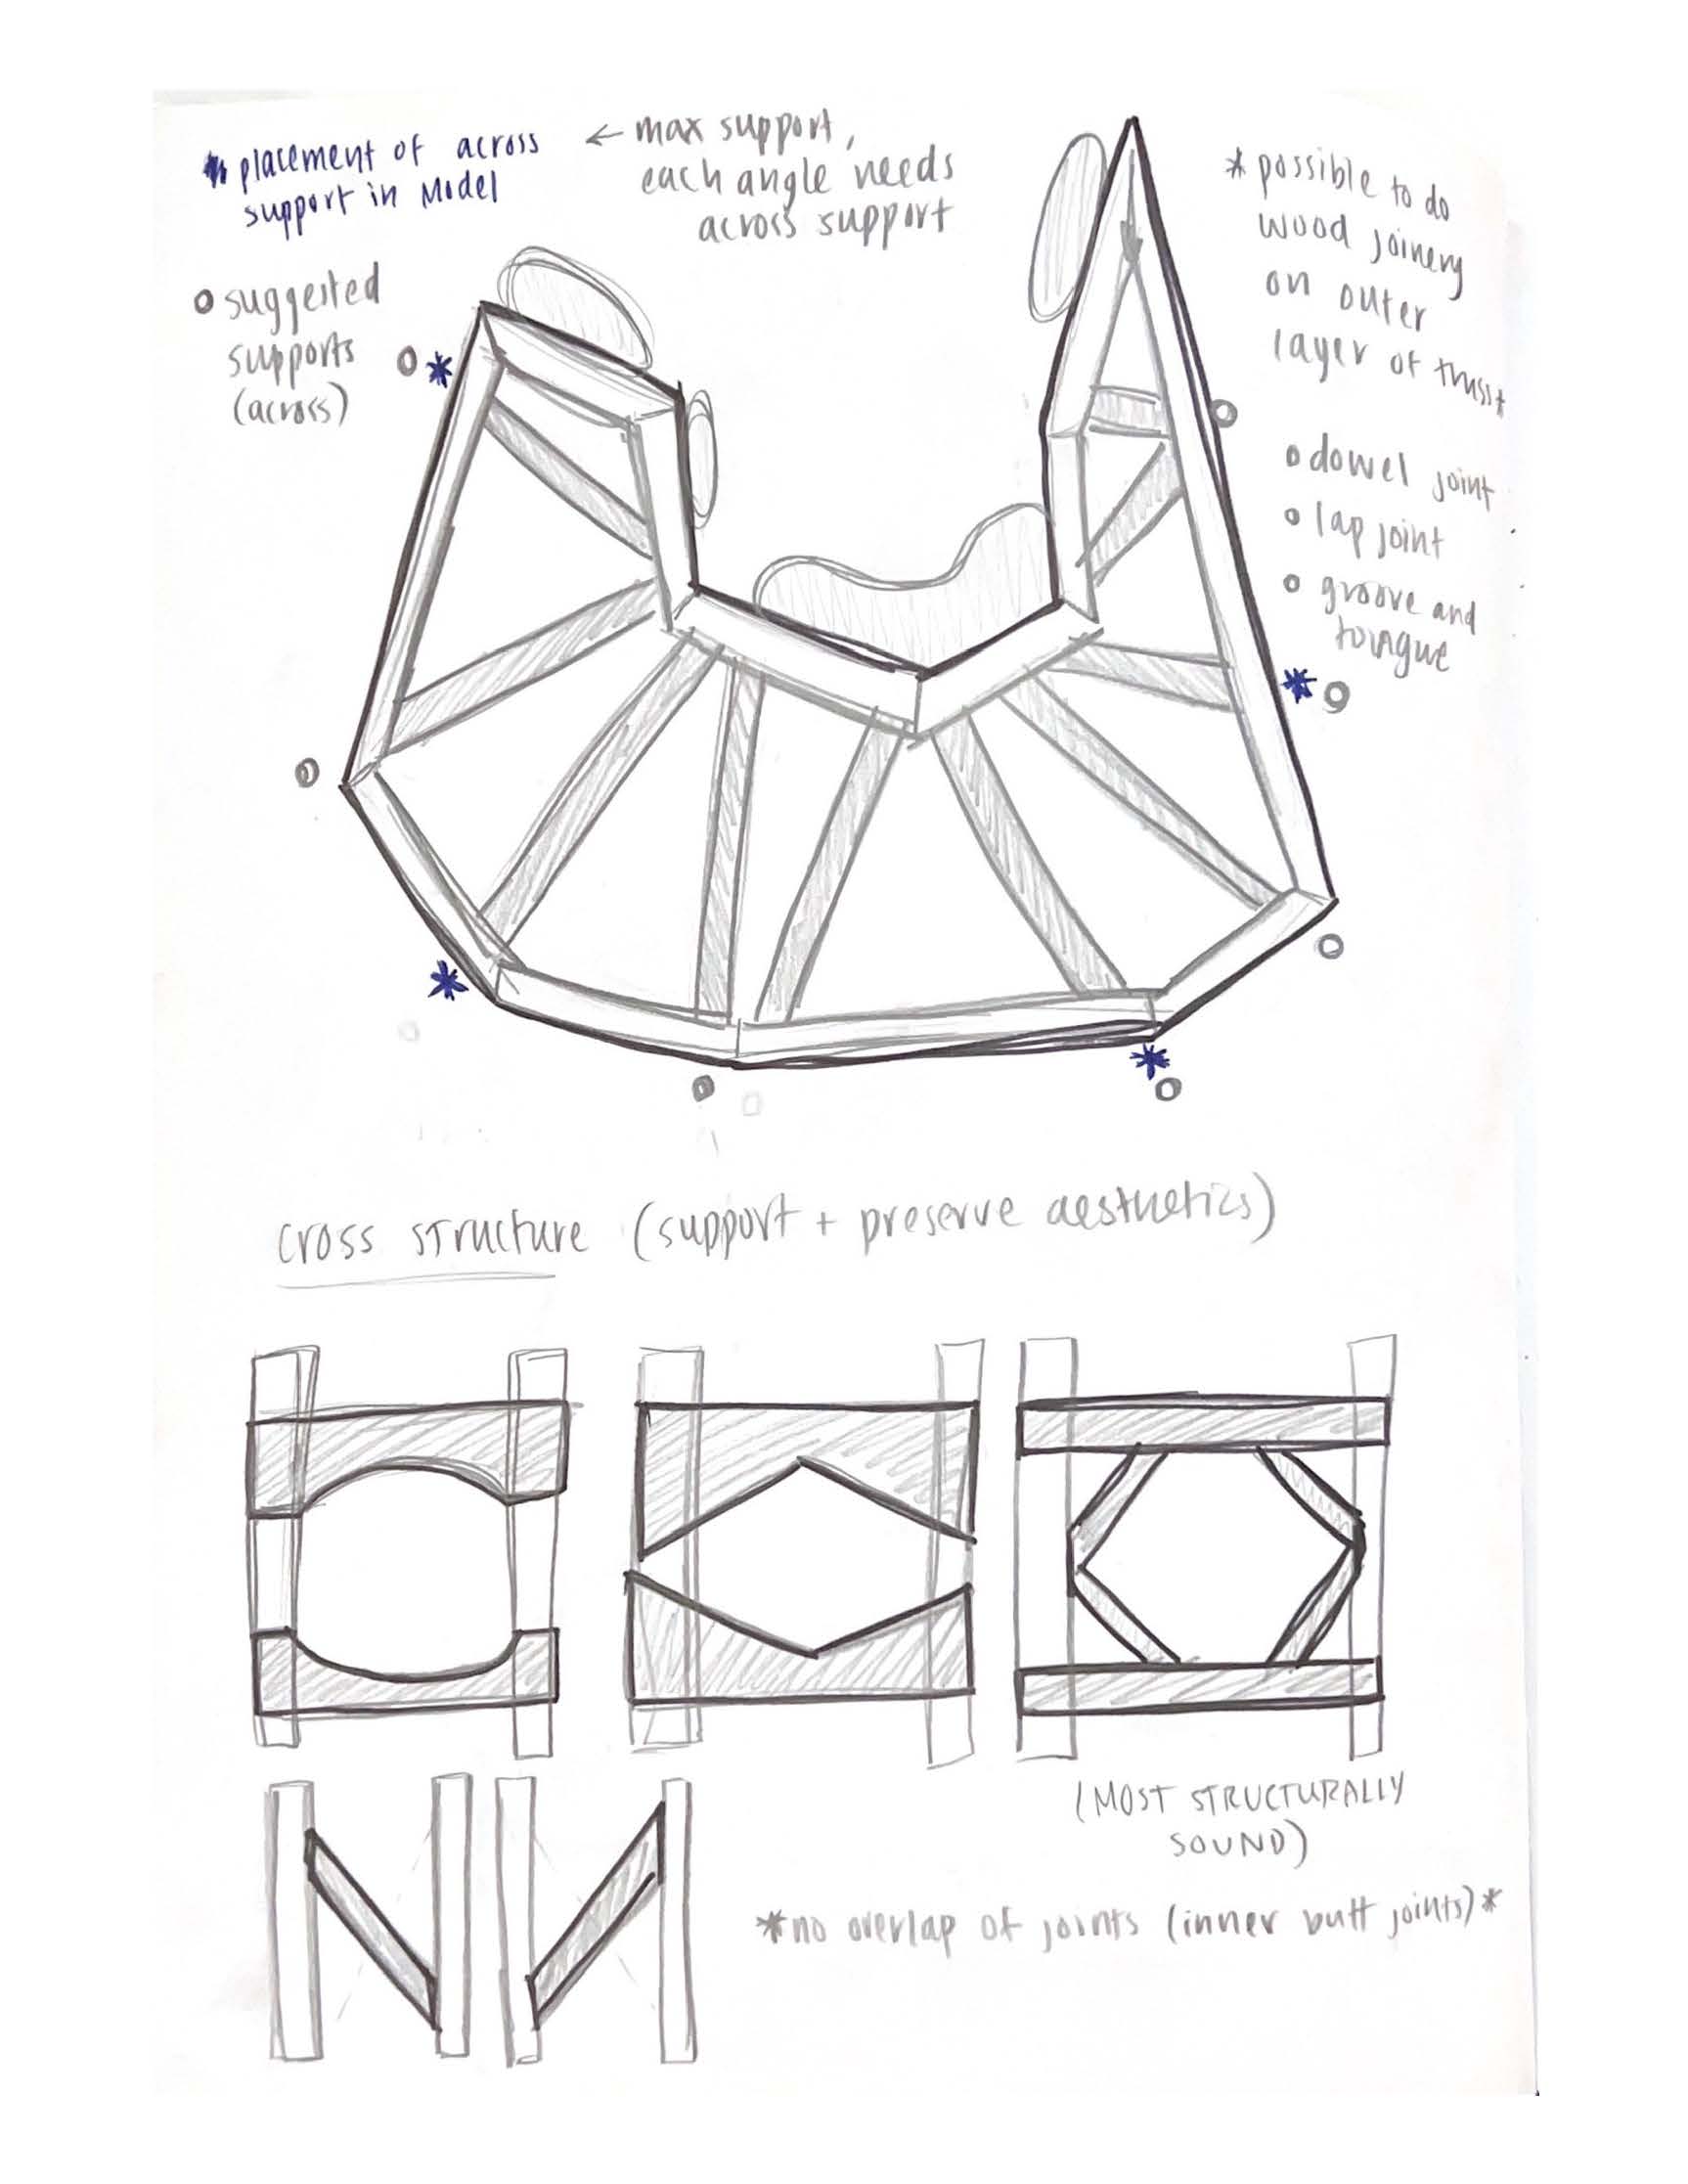 * placement of across
support in Model
← max support,
each angle needs
across support
o suggested
supports
(across)
* possible to do
wood joinery
on outer
layer of truss*
o dowel joint
o lap joint
o groove and
tongue
cross structure (support + preserve aesthetics)
(MOST STRUCTURALLY
SOUND)
*no overlap of joints (inner butt joints)*